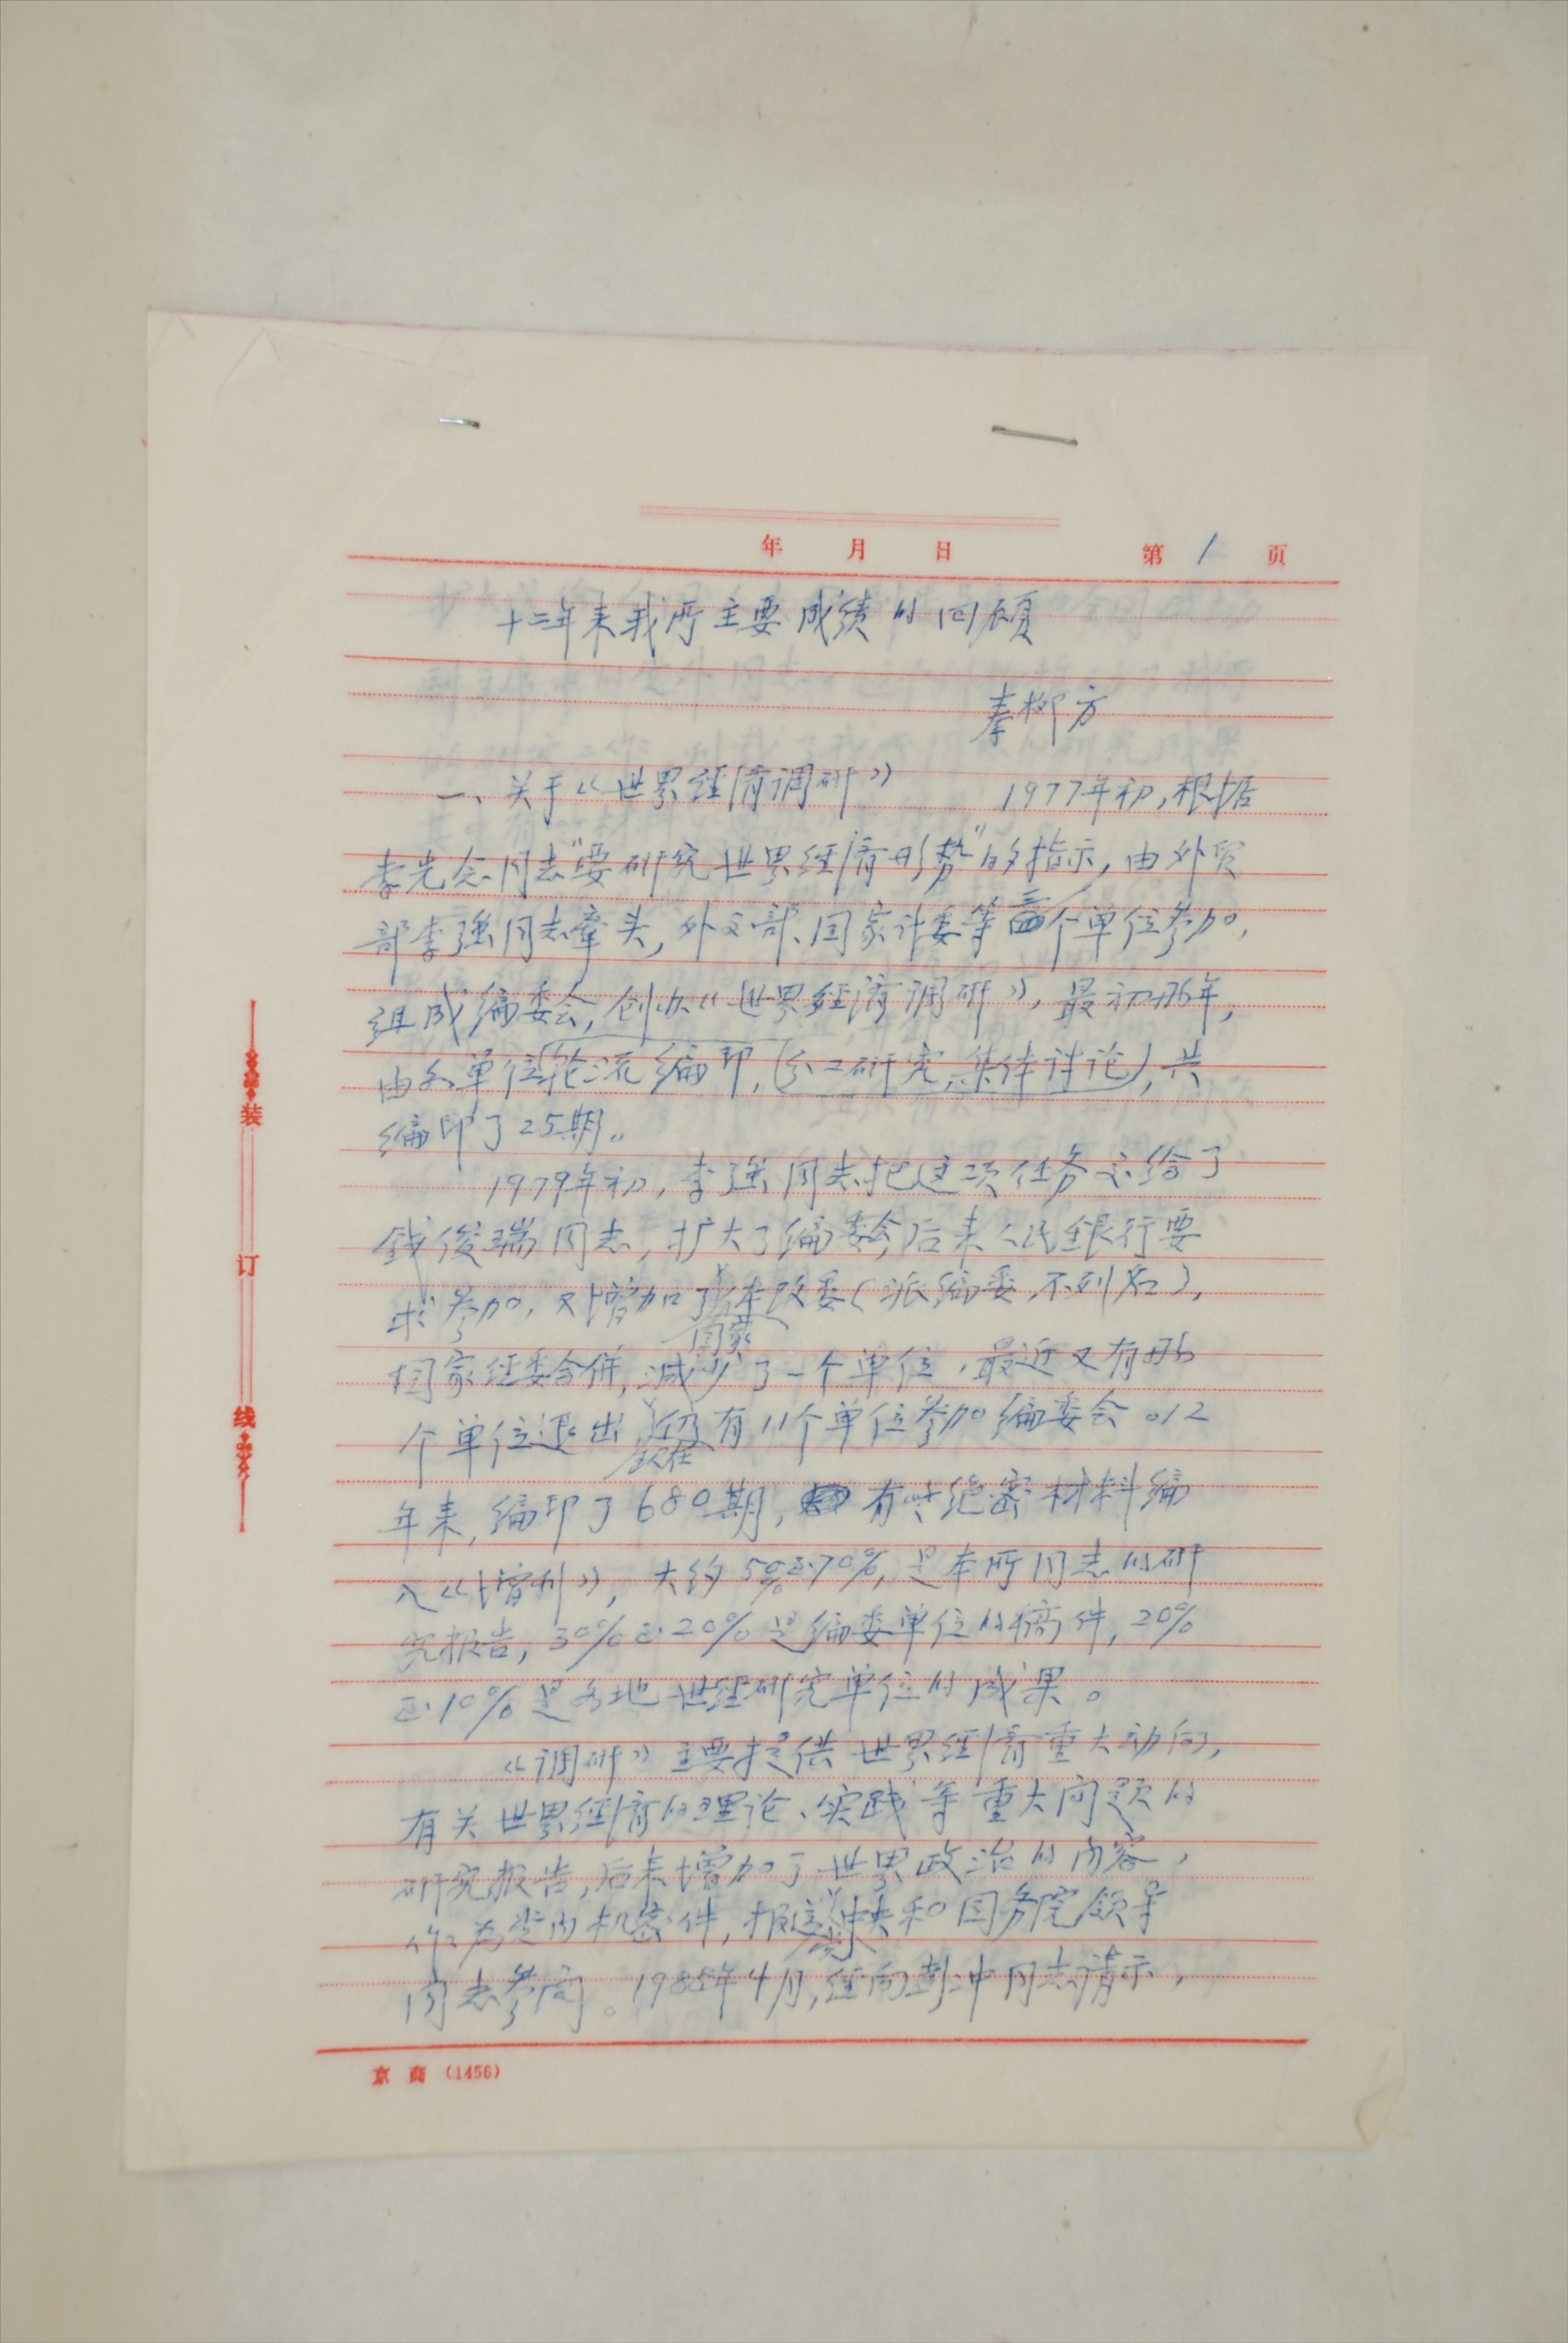 年 月 日 第 1 页
十二年来我所主要成绩的回顾
秦柳方
一、关于《世界经济调研》 1977年初,根据
李先念同志"要研究世界经济形势"的指示,由外贸
部李强同志牵头,外交部、国家计委等 个单位参加,
组成编委会,创办《世界经济调研》,最初 年,
由各单位轮流编印,(分工研究,集体讨论),共
编印了25期。
1979年初,李强同志把这项任务交给了
钱俊瑞同志,扩大了编委会后来人民银行要
求参加,又增加了国家体改委(派编委,不列名),
国家经委合併,减少了一个单位,最近又有
个单位退出,现在仍有11个单位参加编委会。12
年来,编印了680期,有些绝密材料编
入《增刊》,大约50%至70%,是本所同志的研
究报告,30%至20%是编委单位的稿件,20%
至10%是各地世经研究单位的成果。
《调研》主要提供世界经济重大动向,
有关世界经济的理论、实践等重大问题的
研究报告,后来增加了世界政治的内容,
作为党内机密件,报送 中央和国务院领导
同志参阅。1985年4月,经向彭冲同志请示,
装
订
线
京 商 (1456)